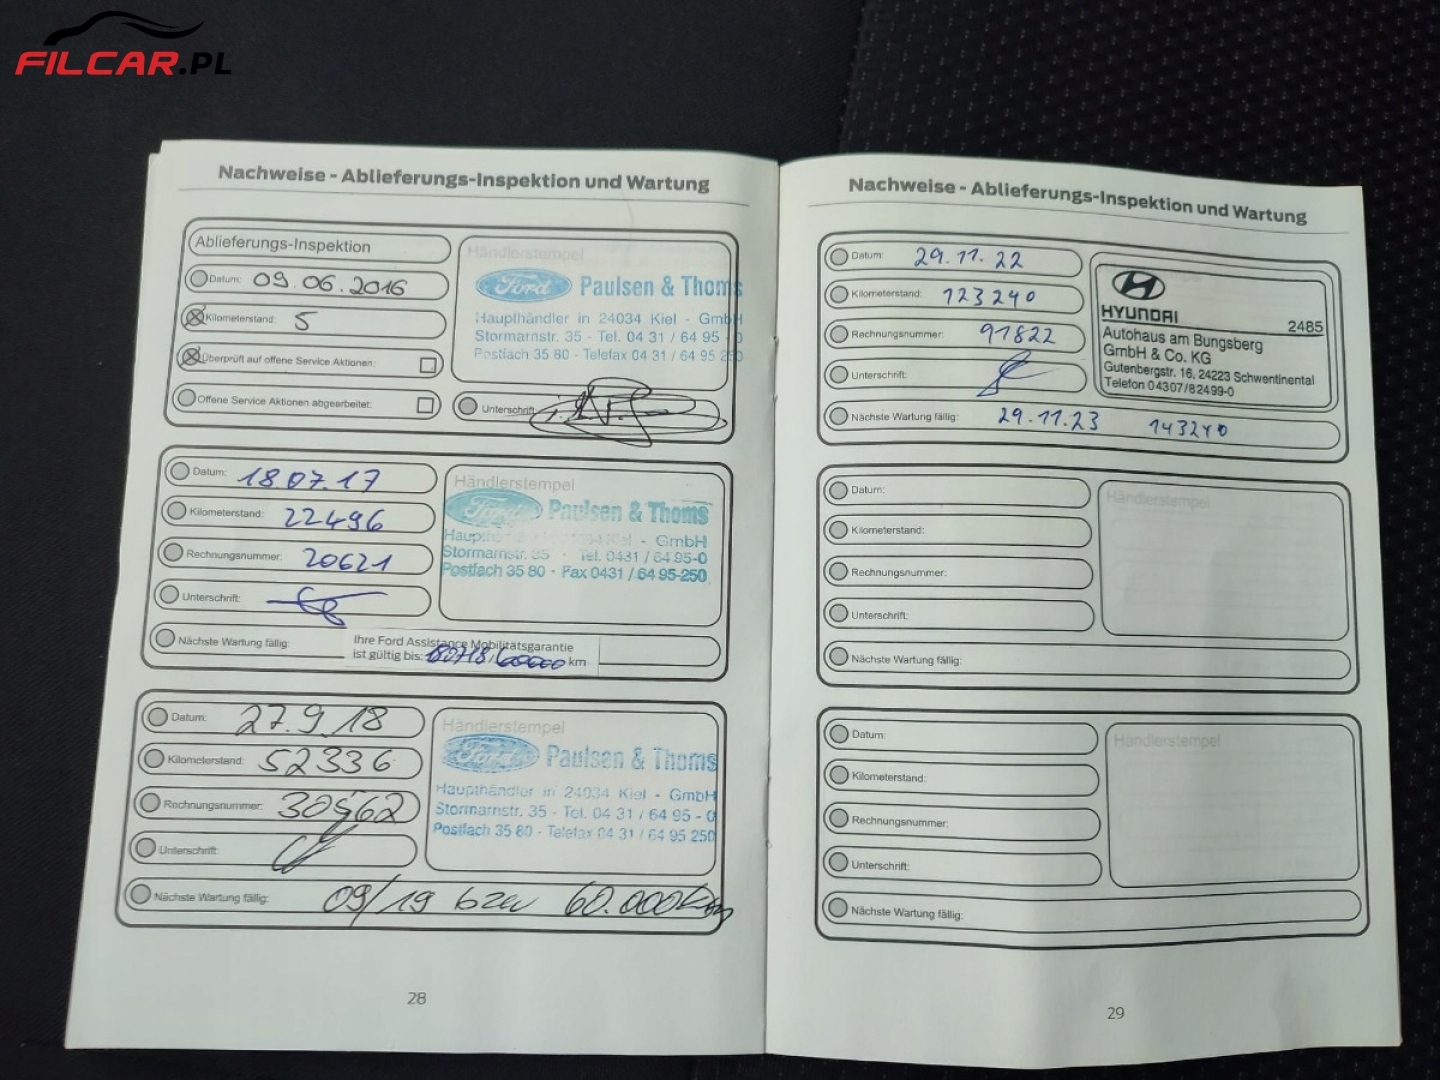 FILCAR.PL
Nachweise - Ablieferungs-Inspektion und Wartung
Ablieferungs-Inspektion
Datum: 09.06.2016
Kilometerstand: 5
Überprüft auf offene Service Aktionen:
Offene Service Aktionen abgearbeitet:
Händlerstempel
Ford Paulsen & Thoms
Haupthändler in 24034 Kiel - GmbH
Stormarnstr. 35 - Tel. 04 31 / 64 95 - 0
Postfach 35 80 - Telefax 04 31 / 64 95 250
Unterschrift:
Datum: 18.07.17
Kilometerstand: 22496
Rechnungsnummer: 20621
Unterschrift:
Händlerstempel
Ford Paulsen & Thoms
Kiel - GmbH
Stormarnstr. 35 - Tel. 0431 / 64 95-0
Postfach 35 80 - Fax 0431 / 64 95-250
Nächste Wartung fällig:
Ihre Ford Assistance Mobilitätsgarantie
ist gültig bis: 180718/60000 km
Datum: 27.9.18
Kilometerstand: 52336
Rechnungsnummer: 30562
Unterschrift:
Händlerstempel
Ford Paulsen & Thoms
Haupthändler in 24034 Kiel - GmbH
Stormarnstr. 35 - Tel. 04 31 / 64 95 - 0
Postfach 35 80 - Telefax 04 31 / 64 95 250
Nächste Wartung fällig: 09/19 bzw 60.000km
28
Nachweise - Ablieferungs-Inspektion und Wartung
Datum: 29.11.22
Kilometerstand: 123240
Rechnungsnummer: 91822
Unterschrift:
HYUNDAI 2485
Autohaus am Bungsberg
GmbH & Co. KG
Gutenbergstr. 16, 24223 Schwentinental
Telefon 04307/82499-0
Nächste Wartung fällig: 29.11.23 143240
Datum:
Kilometerstand:
Rechnungsnummer:
Unterschrift:
Händlerstempel
Nächste Wartung fällig:
Datum:
Kilometerstand:
Rechnungsnummer:
Unterschrift:
Händlerstempel
Nächste Wartung fällig:
29